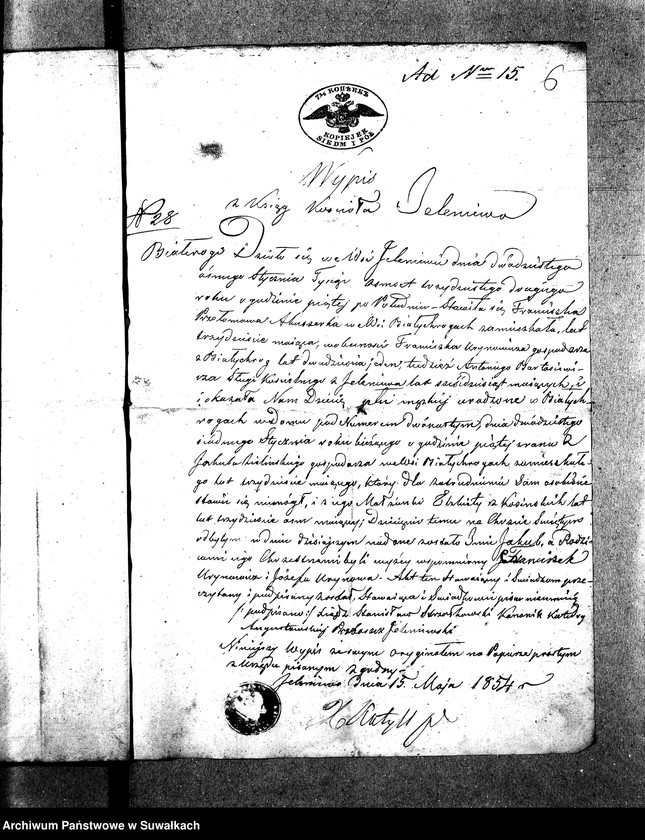 Ad Nro 15. 6
7½ КОПѢЕКЪ
KOPIEJEK
SIEDM I PÓŁ
Wypis
z Księgy Kościoła Jeleniewo
N 28
Białerogi Działo się we Wsi Jeleniewie dnia dwudziestego
ósmego Stycznia Tysiąc osmset trzydziestego drugiego
roku o godzinie piątej po Południu Stawiła się Franciszka
Przełomowa Akuszerka w Wsi Białychrogach zamieszkała, lat
trzydzieści mająca, w obecności Franciszka gospodarza
z Białychrog lat dwadzieścia jeden, tudzież Antoniego Bartosiewi-
cza Sługi Kościelnego z Jeleniewa lat sześćdziesiąt mających, i
okazała Nam Dziecię płci męskiej urodzone w Białych-
rogach w domu pod Numerem dwónastym, dnia dwudziestego
siódmego Stycznia roku bieżącego o godzinie piątej zrana z
Jakuba Zielinskiego gospodarza we Wsi Białychrogach zamieszkałe-
go lat trzydzieści mającego, który dla zatrudnienia Sam osobiście
stawić się niemógł, i z iego Małżonki Elżbiety z Kosinskich lat
lat trzydzieści osm mającej; Dziecięciu temu na Chrzcie Świętym
odbytym w dniu dzisiejszym nadane zostało Imie Jakub, a Rodzi-
cami iego Chrzestnemi byli wyżey wspomniony Franciszek
i Józefa. Akt ten Stawaiącey i Świadkom prze-
czytany i podpisany został, Stawaiąca i Świadkowie pisać nieumieią
/: podpisano :/ Xiądz Stanisław Kanonik Katedry
Augustowskiej Proboszcz Jeleniewski
Ninieyszy Wypis ze swym oryginałem na Papierze prostym
z Urzędu pisanym zgodny
Jeleniewo Dnia 15. Maja 1854 r
X Katyll
Archiwum Państwowe w Suwałkach